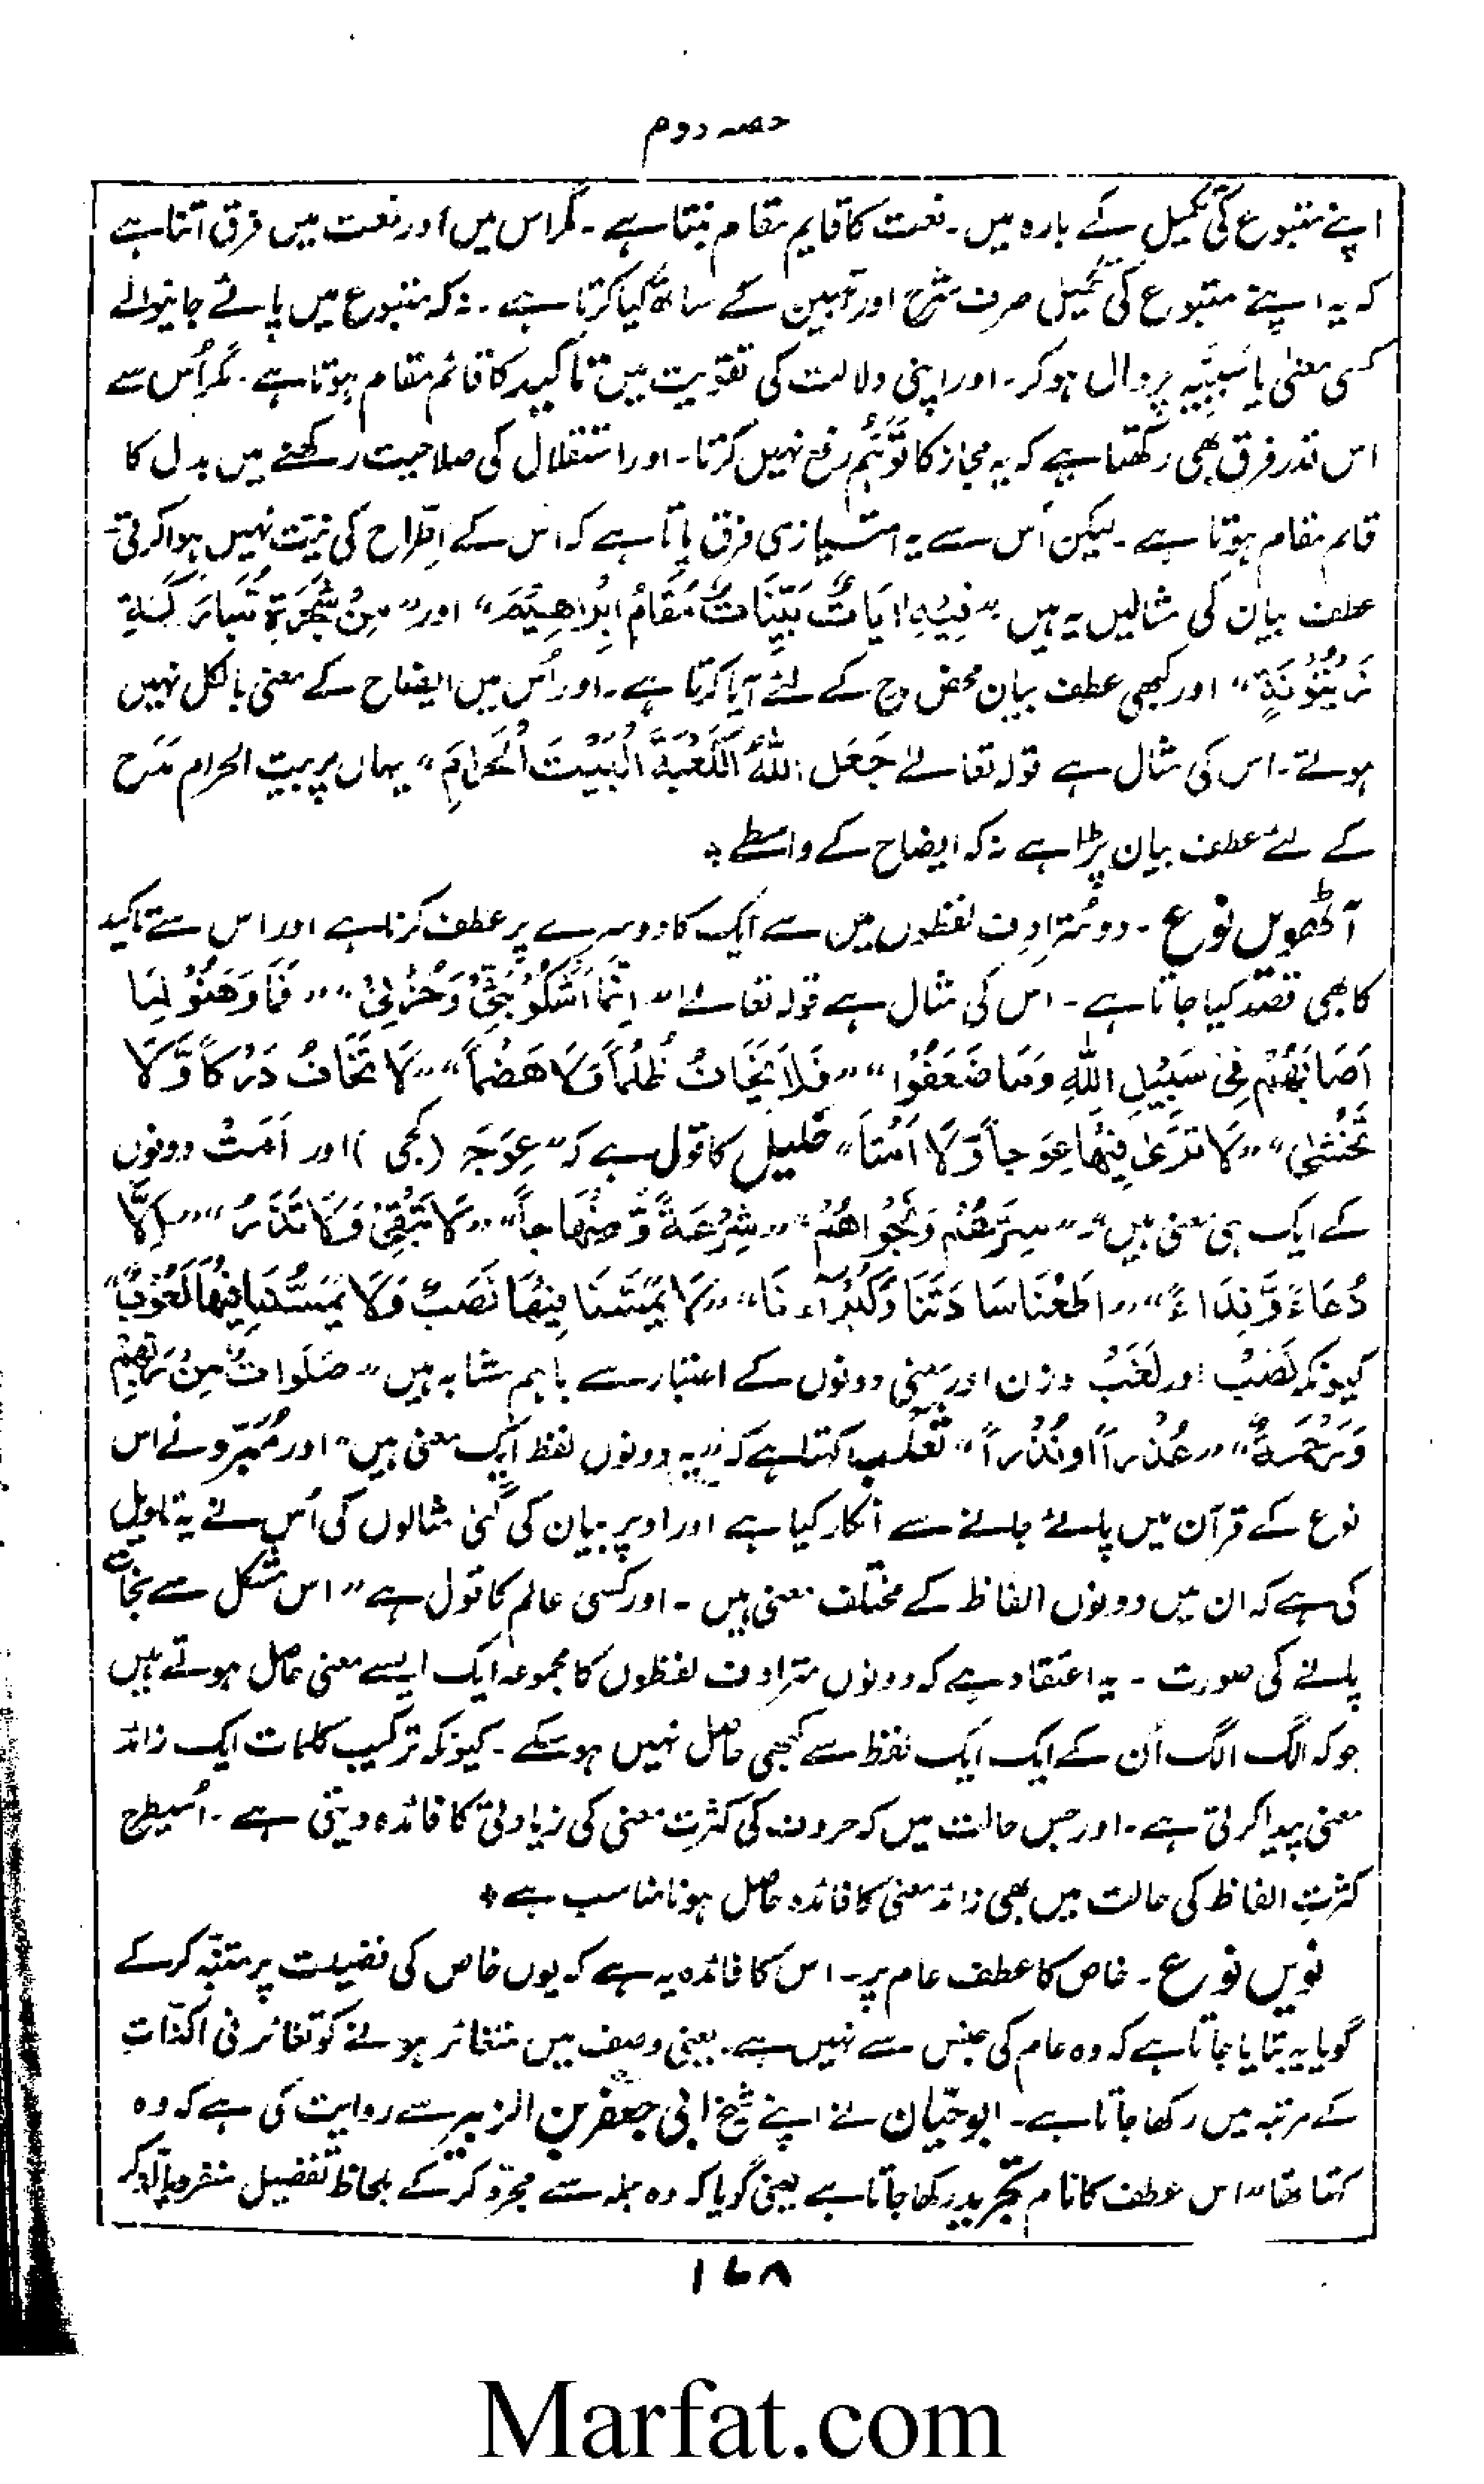 حصہ دوم
اپنے متبوع کی تکمیل کے بارہ میں۔ نعت کا قایم مقام بنتا ہے۔ مگر اس میں اور نعت میں فرق اتنا ہے
کہ یہ اپنے متبوع کی تکمیل صرف شرح اور تبیین کے ساتھ کیا کرتا ہے۔ نہ کہ متبوع میں پائے جانیوالے
کسی معنی یا سَبَبِیَّہ پر دال ہوکر۔ اور اپنی دلالت کی تقویت میں تاکید کا قائم مقام ہوتا ہے۔ مگر اُس سے
اس قدر فرق بھی رکھتا ہے کہ یہ مجاز کا تَوَہُّم رفع نہیں کرتا۔ اور استقلال کی صلاحیت رکھنے میں بدل کا
قائم مقام ہوتا ہے۔ لیکن اُس سے یہ امتیازی فرق پاتا ہے کہ اس کے اِطّراح کی نیّت نہیں ہوا کرتی۔
عطف بیان کی مثالیں یہ ہیں "فِیْہِ اٰیَاتٌ بَیِّنَاتٌ مَّقَامُ اِبْرَاھِیْمَ" اور "مِنْ شَجَرَۃٍ مُّبَارَکَۃٍ
زَیْتُوْنَۃٍ" اور کبھی عطف بیان محض مدح کے لئے آیا کرتا ہے۔ اور اُس میں ایضاح کے معنی بالکل نہیں
ہوتے۔ اس کی مثال ہے قولہ تعالےٰ جَعَلَ اللّٰہُ الْکَعْبَۃَ الْبَیْتَ الْحَرَامَ" یہاں پر بیت الحرام مَدح
کے لئے عطف بیان پڑا ہے نہ کہ ایضاح کے واسطے *
آٹھویں نوع۔ دو مُترادِف لفظوں میں سے ایک کا دوسرے پر عطف کرنا ہے اور اس سے تاکید
کا بھی قصد کیا جاتا ہے۔ اس کی مثال ہے قولہ تعالےٰ "اِنَّمَا اَشْکُوْ بَثِّیْ وَحُزْنِیْ" "فَمَا وَھَنُوْ لِمَا
اَصَابَھُمْ فِیْ سَبِیْلِ اللّٰہِ وَمَا ضَعَفُوْا" "فَلَا یَخَافُ ظُلْمًا وَّلَا ھَضْمًا" "لَا تَخَافُ دَرَکاً وَّلَا
تَخْشٰی" "لَا تَرٰی فِیْھَا عِوَجاً وَّلَا اَمْتاً" خلیل کا قول ہے کہ "عِوَجَ (کجی) اور اَمَتْ دونوں
کے ایک ہی معنی ہیں"۔ "سِرَّھُمْ وَنَجْوَاھُمْ" "شِرْعَۃً وَّمِنْھَاجاً" "لَا تُبْقِیْ وَلَا تَذَرُ" "اِلَّا
دُعَاءً وَّنِدَاءً" "اَطَعْنَا سَادَتَنَا وَکُبَرَآءَنَا" "لَا یَمَسُّنَا فِیْھَا نَصَبٌ وَلَا یَمَسُّنَا فِیْھَا لُغُوْبٌ"
کیونکہ نَصَبْ اور لَغَبْ وزن اور معنی دونوں کے اعتبار سے باہم مشابہ ہیں "صَلَوَاتٌ مِنْ رَبِّھِمْ
وَرَحْمَۃٌ" "عُذْراً اَوْنُذْراً" ثَعْلَب کہتا ہے کہ "یہ دونوں لفظ ایک معنی ہیں" اور مُبَرِّد نے اس
نوع کے قرآن میں پائے جانے سے انکار کیا ہے اور اوپر بیان کی گئی مثالوں کی اُس نے یہ تاویل
کی ہے کہ ان میں دونوں الفاظ کے مختلف معنی ہیں۔ اور کسی عالم کا قول ہے "اس مشکل سے نجات
پانے کی صورت۔ یہ اعتقاد ہے کہ دونوں مترادف لفظوں کا مجموعہ ایک ایسے معنی حاصل ہوتے ہیں
جو کہ الگ الگ اُن کے ایک ایک لفظ سے کبھی حاصل نہیں ہوسکے۔ کیونکہ ترکیب کلمات ایک زائد
معنی پیدا کرتی ہے۔ اور جس حالت میں کہ حروف کی کثرتِ معنی کی زیادتی کا فائدہ دیتی ہے۔ اُسیطرح
کثرتِ الفاظ کی حالت میں بھی زائد معنی کا فائدہ حاصل ہونا مناسب ہے *
نویں نوع۔ خاص کا عطف عام پر۔ اس کا فائدہ یہ ہے کہ یوں خاص کی فضیلت پر متنبّہ کرکے
گویا یہ بتایا جاتا ہے کہ وہ عام کی جنس سے نہیں ہے۔ یعنی وصف میں متغائر ہونے کو تغائر فی الذّات
کے مرتبہ میں رکھا جاتا ہے۔ ابوحیّان نے اپنے شیخ ابی جعفر بن الزبیر سے روایت کی ہے کہ وہ
کہتا تھا "اس عطف کا نام تجرید رکھا جاتا ہے یعنی گویا کہ وہ جملہ سے مجرّد کرکے بلحاظ تفضیل منفرد بالذکر
۱۶۸
Marfat.com